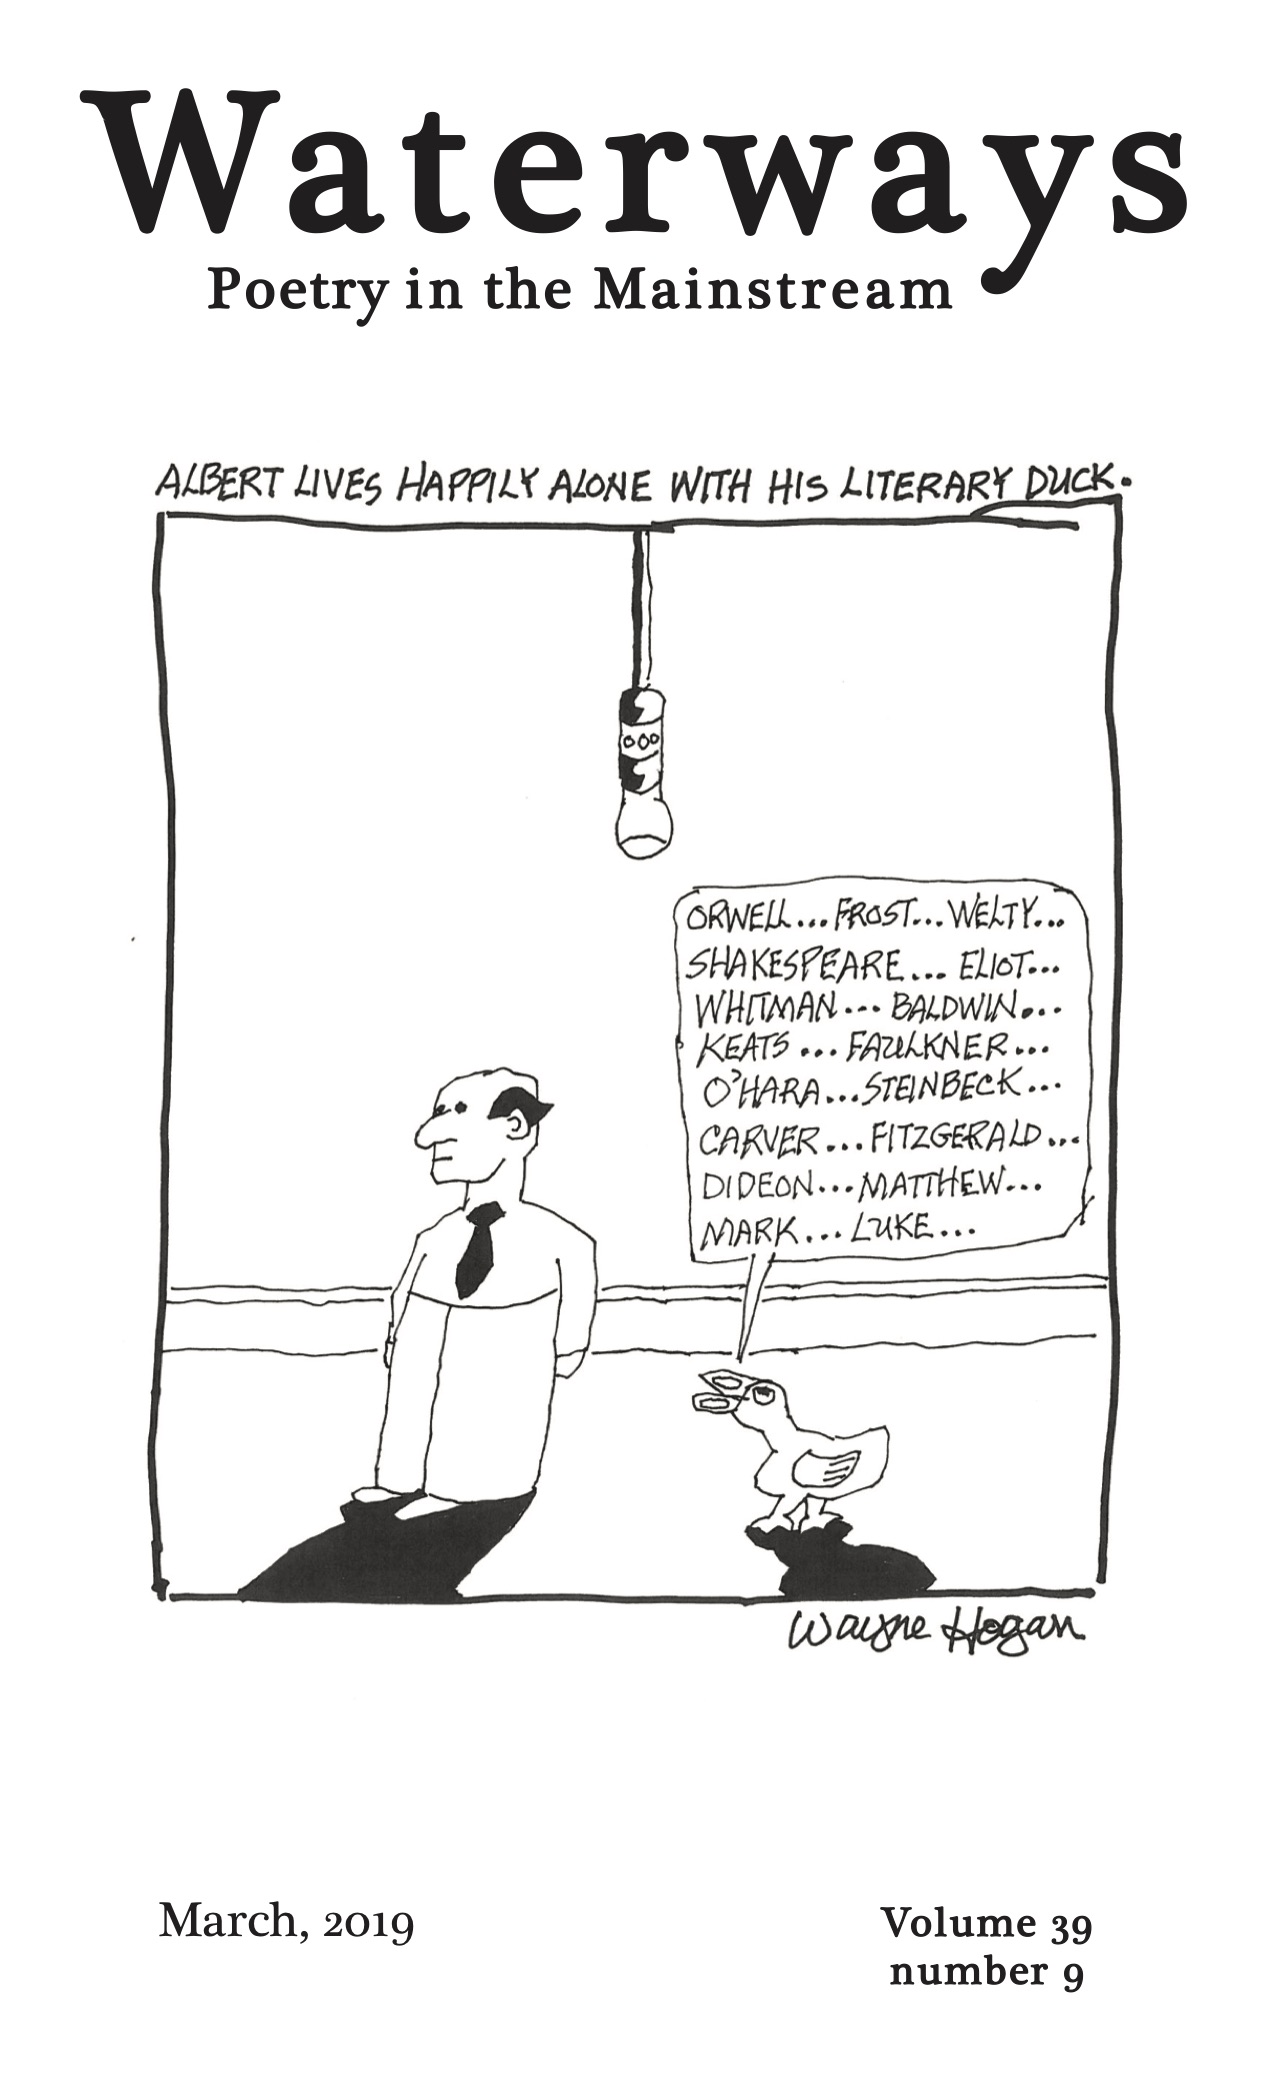 Waterways
Poetry in the Mainstream
ALBERT LIVES HAPPILY ALONE WITH HIS LITERARY DUCK.
ORWELL...FROST...WELTY...
SHAKESPEARE... ELIOT...
WHITMAN... BALDWIN...
KEATS ... FAULKNER...
O'HARA...STEINBECK...
CARVER...FITZGERALD...
DIDEON...MATTHEW...
MARK... LUKE...
Wayne Hogan
March, 2019
Volume 39
number 9